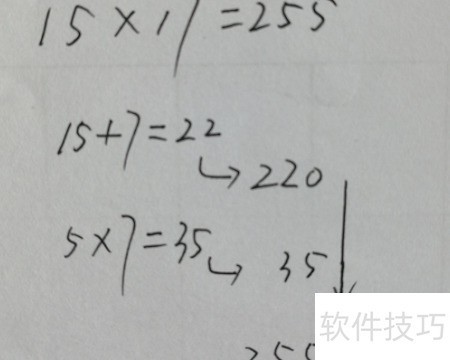 15×17=255
15+7=22
↳ 220
5×7=35
↳ 35
255
软件技巧